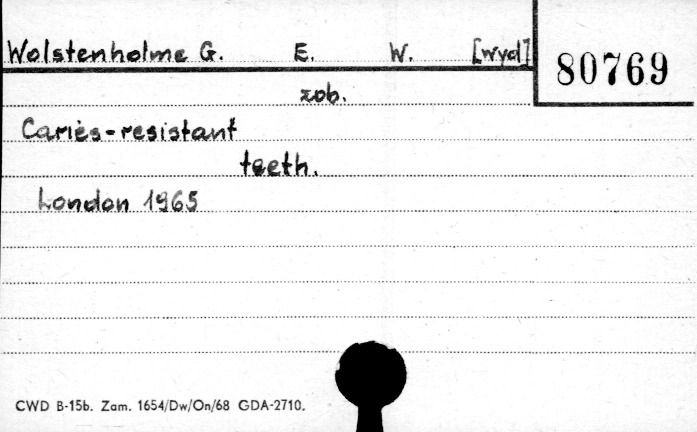 Wolstenholme G. E. W. [wyd]
80769
zob.
Caries-resistant
teeth.
London 1965
CWD B-15b. Zam. 1654/Dw/On/68 GDA-2710.